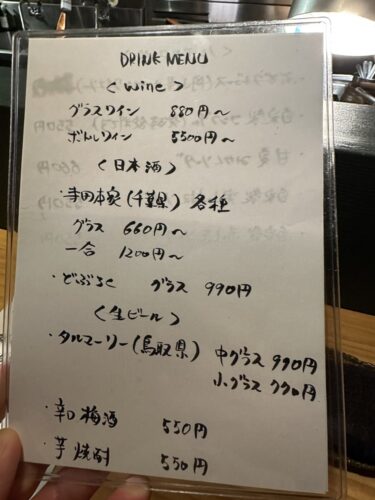 DRINK MENU
〈wine〉
グラスワイン 880円〜
ボトルワイン 5500円〜
〈日本酒〉
・寺田本家(千葉県)各種
グラス 660円〜
一合 1200円〜
・どぶろく グラス 990円
〈生ビール〉
・タルマーリー(鳥取県) 中グラス 990円
小グラス 770円
・辛口梅酒 550円
・芋焼酎 550円